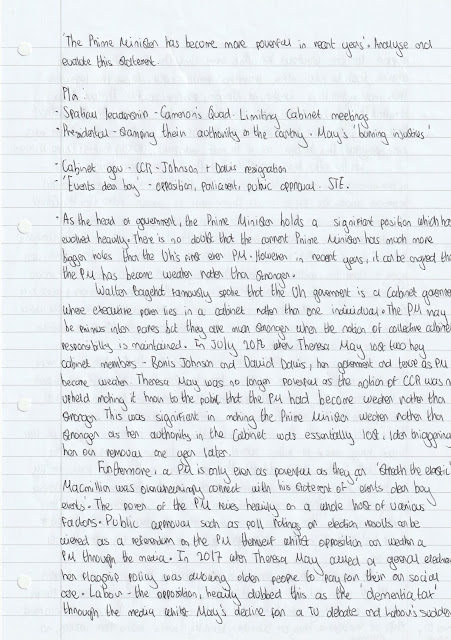 'The Prime Minister has become more powerful in recent years'. Analyse and
evaluate this statement.
Plan:
- Spatial leadership - Cameron's Quad. Limiting Cabinet meetings
- Presidential - Stamping their authority on the country. May's 'burning injustices'
- Cabinet gov - CCR - Johnson + Davis resignation
- 'Events dear boy - opposition, parliament, public approval. STE.
As the head of government, the Prime Minister holds a significant position which has
evolved heavily. There is no doubt that the current Prime Minister has much more
bigger roles than the Uk's first ever PM. However in recent years, it can be argued that
the PM has become weaker rather than stronger.
Walter Bagehot famously spoke that the Uk government is a Cabinet government
where executive power lies in a cabinet rather than one individual. The PM may
be primus inter pares but they are even stronger when the notion of collective cabinet
responsibility is maintained. In July 2018 when Theresa May lost two key
cabinet members - Boris Johnson and David Davis, her government and tenure as PM
became weaker. Theresa May was no longer powerful as the notion of CCR was not
upheld making it known to the public that the PM had become weaker rather than
stronger. This was significant in making the Prime Minister weaker rather than
stronger as her authority in the Cabinet was essentially lost, later triggering
her own removal one year later.
Furthermore, a PM is only ever as powerful as they can 'stretch the elastic'
Macmillan was overwhelmingly correct with his statement of 'events dear boy
events'. The power of the PM relies heavily on a whole host of various
factors. Public approval such as poll ratings or election results can be
viewed as a referendum on the PM themself whilst opposition can weaken a
PM through the media. In 2017 when Theresa May called a general election
her flagship policy was allowing older people to pay for their own social
care. Labour - the opposition, heavily dubbed this as the 'dementia tax'
through the media whilst May's decline for a TV debate and Labour's sudden